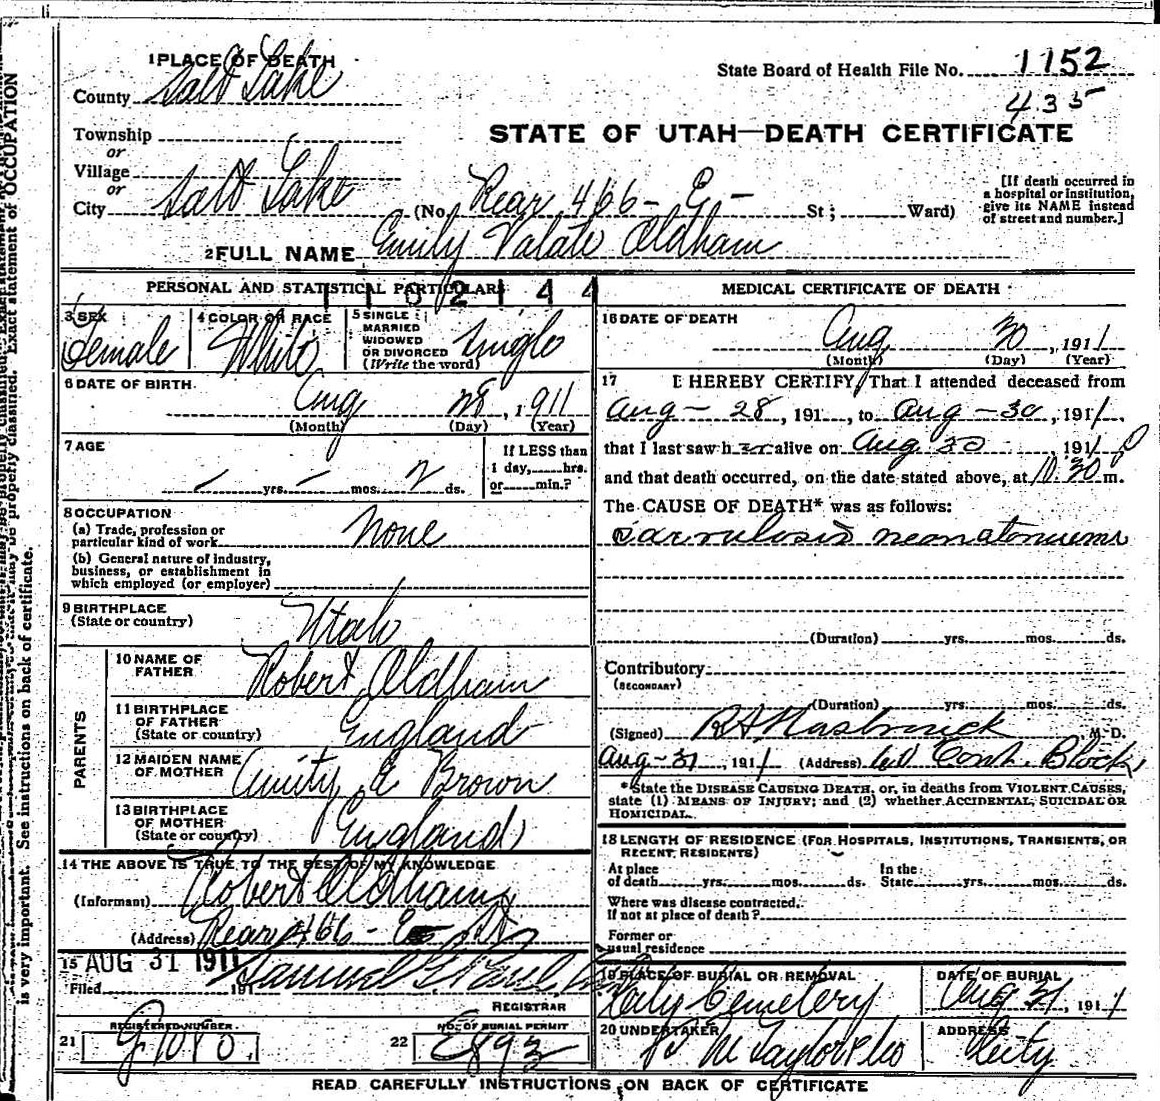 1 PLACE OF DEATH
County Salt Lake
State Board of Health File No. 1152
435
Township
or
Village
or
City Salt Lake
STATE OF UTAH—DEATH CERTIFICATE
(No. Rear 466 - E - St; Ward)
[If death occurred in a hospital or institution, give its NAME instead of street and number.]
2 FULL NAME Emily Oldham
PERSONAL AND STATISTICAL PARTICULARS
1102144
3 SEX
Female
4 COLOR OR RACE
White
5 SINGLE
MARRIED
WIDOWED
OR DIVORCED
(Write the word)
Single
6 DATE OF BIRTH
Aug 28, 1911
(Month) (Day) (Year)
7 AGE
– yrs. – mos. 2 ds.
If LESS than
1 day, hrs.
or min.?
8 OCCUPATION
(a) Trade, profession or
particular kind of work
None
(b) General nature of industry,
business, or establishment in
which employed (or employer)
9 BIRTHPLACE
(State or country)
Utah
PARENTS
10 NAME OF
FATHER
Robert Oldham
11 BIRTHPLACE
OF FATHER
(State or country)
England
12 MAIDEN NAME
OF MOTHER
E Brown
13 BIRTHPLACE
OF MOTHER
(State or country)
England
14 THE ABOVE IS TRUE TO THE BEST OF MY KNOWLEDGE
(Informant) Robert Oldham
(Address) Rear 466 - E St
15 AUG 31 1911
Filed 191 Samuel G. Paul
REGISTRAR
21 REGISTERED NUMBER
22 NO. OF BURIAL PERMIT
E893
MEDICAL CERTIFICATE OF DEATH
16 DATE OF DEATH
Aug 30, 1911
(Month) (Day) (Year)
17 I HEREBY CERTIFY, That I attended deceased from
Aug - 28, 191 , to Aug - 30, 1911,
that I last saw her alive on Aug 30, 1911
and that death occurred, on the date stated above, at 10.30 P m.
The CAUSE OF DEATH* was as follows:
(Duration) yrs. mos. ds.
Contributory
(SECONDARY)
(Duration) yrs. mos. ds.
(Signed) R A Hasbrouck M-D.
Aug - 31, 1911 (Address) Cont. Block
*State the DISEASE CAUSING DEATH, or, in deaths from VIOLENT CAUSES,
state (1) MEANS OF INJURY; and (2) whether ACCIDENTAL, SUICIDAL OR
HOMICIDAL.
18 LENGTH OF RESIDENCE (FOR HOSPITALS, INSTITUTIONS, TRANSIENTS, OR
RECENT RESIDENTS)
At place
of death yrs. mos. ds.
In the
State yrs. mos. ds.
Where was disease contracted,
if not at place of death?
Former or
usual residence
19 PLACE OF BURIAL OR REMOVAL
City Cemetery
DATE OF BURIAL
Aug 31, 1911
20 UNDERTAKER
S M Taylor & Co
ADDRESS
City
READ CAREFULLY INSTRUCTIONS ON BACK OF CERTIFICATE
properly classified. Exact statement of OCCUPATION
is very important. See instructions on back of certificate.